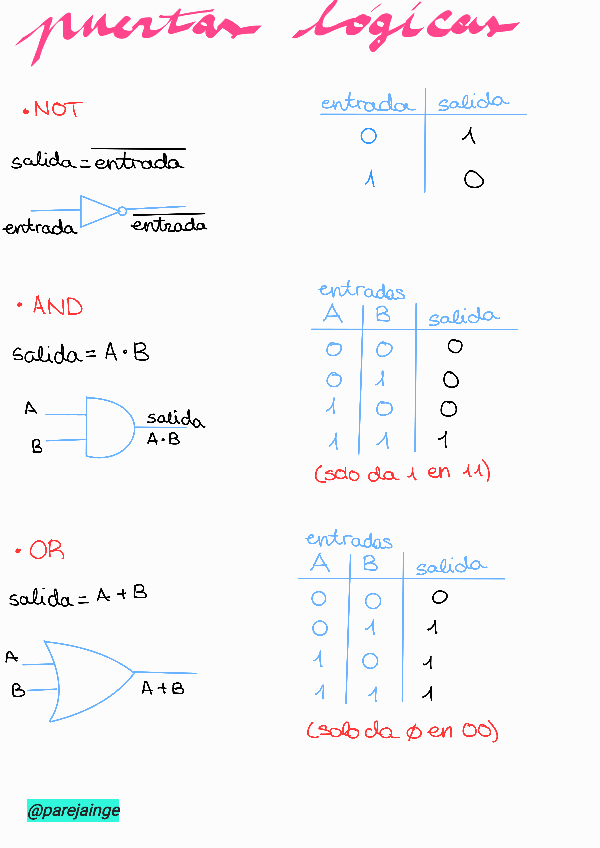 puertas lógicas
• NOT
salida = entrada
entrada
entrada
entrada salida
0 1
1 0
• AND
salida = A · B
A
B
salida
A · B
entradas
A B salida
0 0 0
0 1 0
1 0 0
1 1 1
(solo da 1 en 11)
• OR
salida = A + B
A
B
A + B
entradas
A B salida
0 0 0
0 1 1
1 0 1
1 1 1
(solo da 0 en 00)
@parejainge